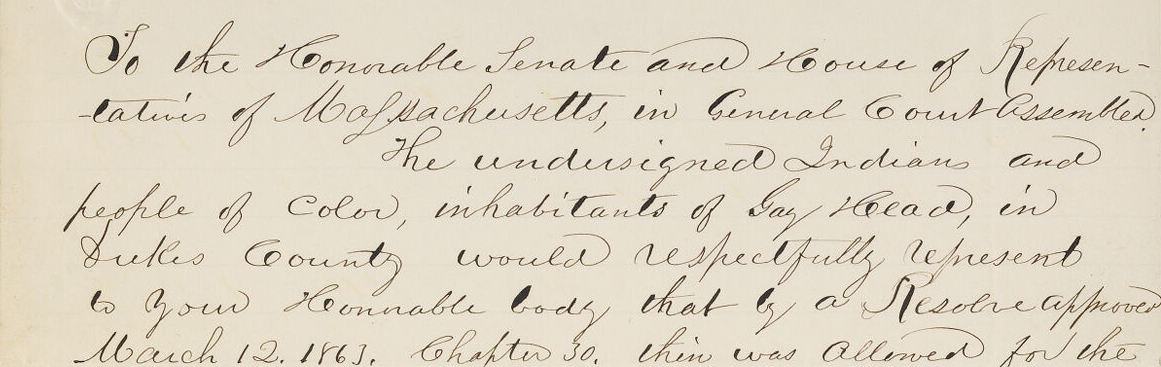 To the Honorable Senate and House of Represen-
-tatives of Massachusetts, in General Court Assembled.
The undersigned Indians and
people of Color, inhabitants of Gay Head, in
Dukes County would respectfully represent
to your Honorable body that by a Resolve approved
March 12. 1863. Chapter 30. there was allowed for the